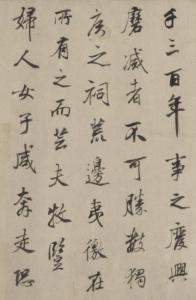 千三百年事之廢興
磨滅者不可勝數獨
侯之祠荒邊夷徼在
所有之而芸夫牧豎
婦人女子咸奔走恐